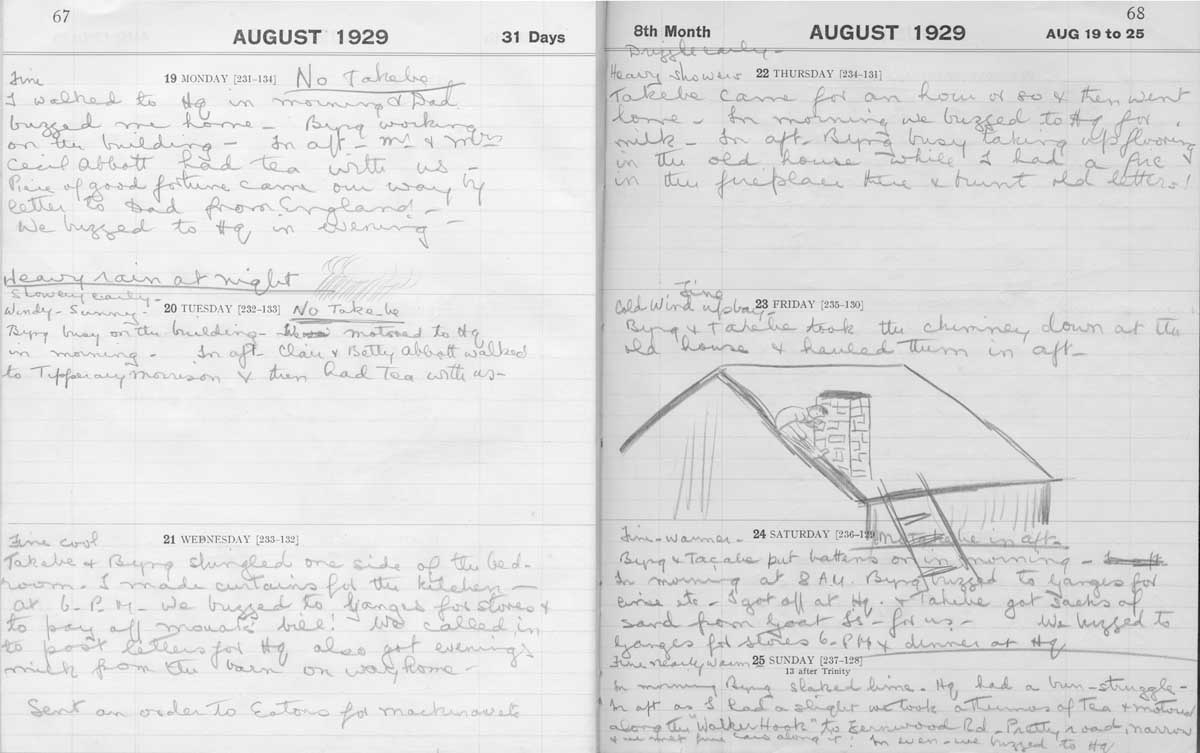 67
AUGUST 1929
31 Days
Fine
19 MONDAY [231-134]
No Takebe
I walked to Hq in morning & Dad
buzzed me home - Byng working
on the building - In aft - Mr & Mrs
Cecil Abbott had tea with us -
Piece of good fortune came our way by
letter to Dad from England! -
We buzzed to Hq in evening -
Heavy rain at night
Showery early -
Windy - Sunny -
20 TUESDAY [232-133]
No Takebe
Byng busy on the building - motored to Hq
in morning - In aft Clair & Betty Abbott walked
to Tipperary Morrison & then had Tea with us -
Fine cool
21 WEDNESDAY [233-132]
Takebe & Byng shingled one side of the bed-
room - I made curtains for the kitchen -
at 6 - P.M - we buzzed to Ganges for stores &
to pay off Mouat's bill! We called in
to post letters for Hq also got evening's
milk from the barn on way home -
Sent an order to Eatons for mackinaws
68
8th Month
AUGUST 1929
AUG 19 to 25
Drizzle early -
Heavy showers
22 THURSDAY [234-131]
Takebe came for an hour or so & then went
home - In morning we buzzed to Hq for
milk - In aft - Byng busy taking up flooring
in the old house while I had a fire
in the fireplace there & burnt old letters!
Fine
Cold Wind up bay
23 FRIDAY [235-130]
Byng & Takebe took the chimney down at the
old house & hauled them in aft -
Fine - warmer -
24 SATURDAY [236-129]
No Takebe in aft -
Byng & Takebe put battens on in morning -
In morning at 8 AM. Byng buzzed to Ganges for
etc - I got off at Hq. & Takebe got sacks of
sand from Goat Is - for us - We buzzed to
Ganges for stores 6 - PM & dinner at Hq
Fine nearly warm
25 SUNDAY [237-128]
13 after Trinity
In morning Byng slaked lime. Hq had a bun-struggle -
In aft as I had a slight we took a thermos of Tea & motored
along the "Walker Hook" to Fernwood Rd - Pretty road, narrow
& we met five cars along it! In even - we buzzed to Hq